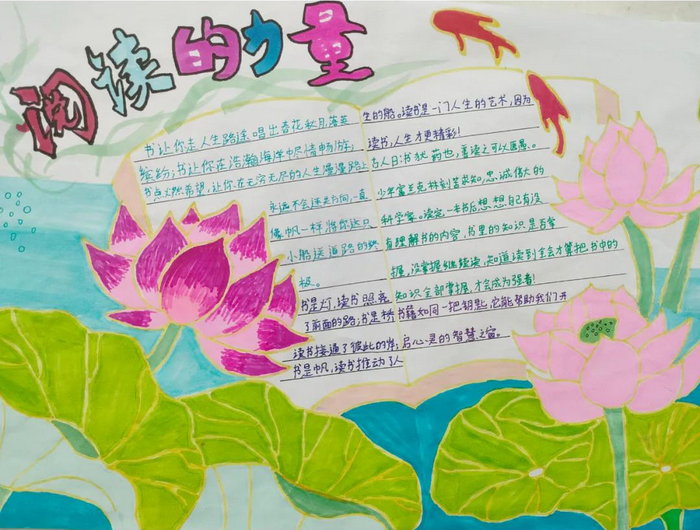 阅读的力量
书让你走人生路途唱出春花秋月,落英
缤纷;书让你在浩瀚海洋中尽情畅游;
书点燃希望,让你在无穷无尽的人生漫漫路上
永远不会迷失方向,一直
像帆一样将你这只
小船送道路的终
极。
书是灯,读书照亮
了前面的路;书是桥
读书接通了彼此的岸;
书是帆,读书推动了人
生的船。读书是一门人生的艺术,因为
读书,人生才更精彩!
古人曰:书犹药也,善读之可以医愚。
少年富兰克林刻苦求知,忠诚伟大的
科学家。读完一本书后想想自己有没
有理解书的内容,书里的知识是否掌
握,没掌握继续读,知道读到全会才算把书中的
知识全部掌握,才会成为强者!
书籍如同一把钥匙,它能帮助我们开
启心灵的智慧之窗。